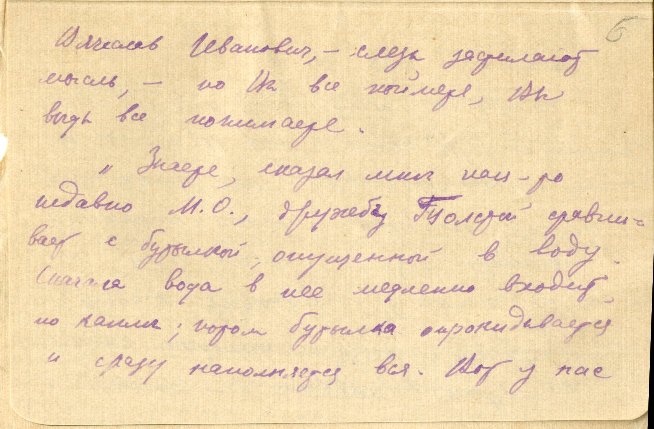 5
Вячеслав Иванович, – слезы застилают
мысль, – но Вы все поймете, Вы
ведь все понимаете.
"Знаете, сказал мне как-то
недавно М.О., дружбу Толстой сравни=
вает с бутылкой, опущенной в воду.
Сначала вода в нее медленно входит,
по капли; потом бутылка опрокидывается
и сразу наполняется вся. Вот у нас